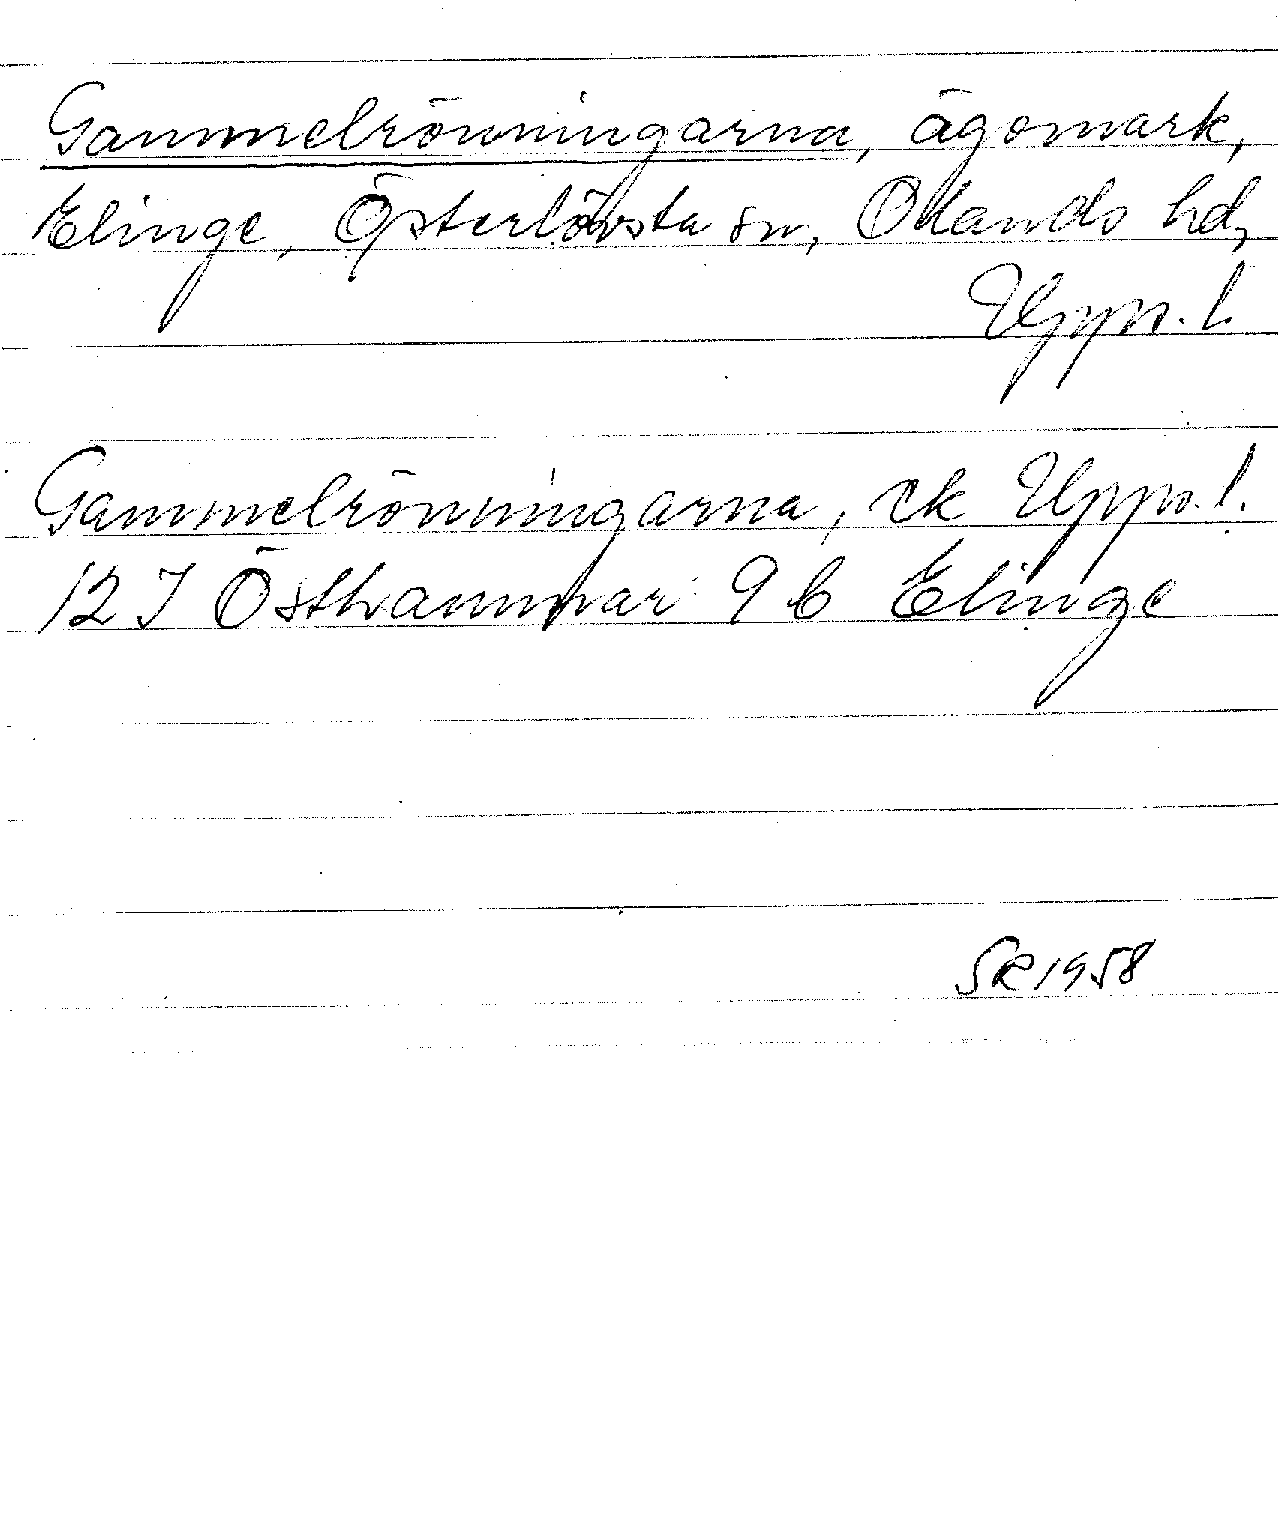 Gammelrönningarna, ägomark,
Elinge, Österlövsta sn, Olands hd,
Upps. l.
Gammelrönningarna, ek Upps. l.
12 I Östhammar 9 b Elinge
SR 1958